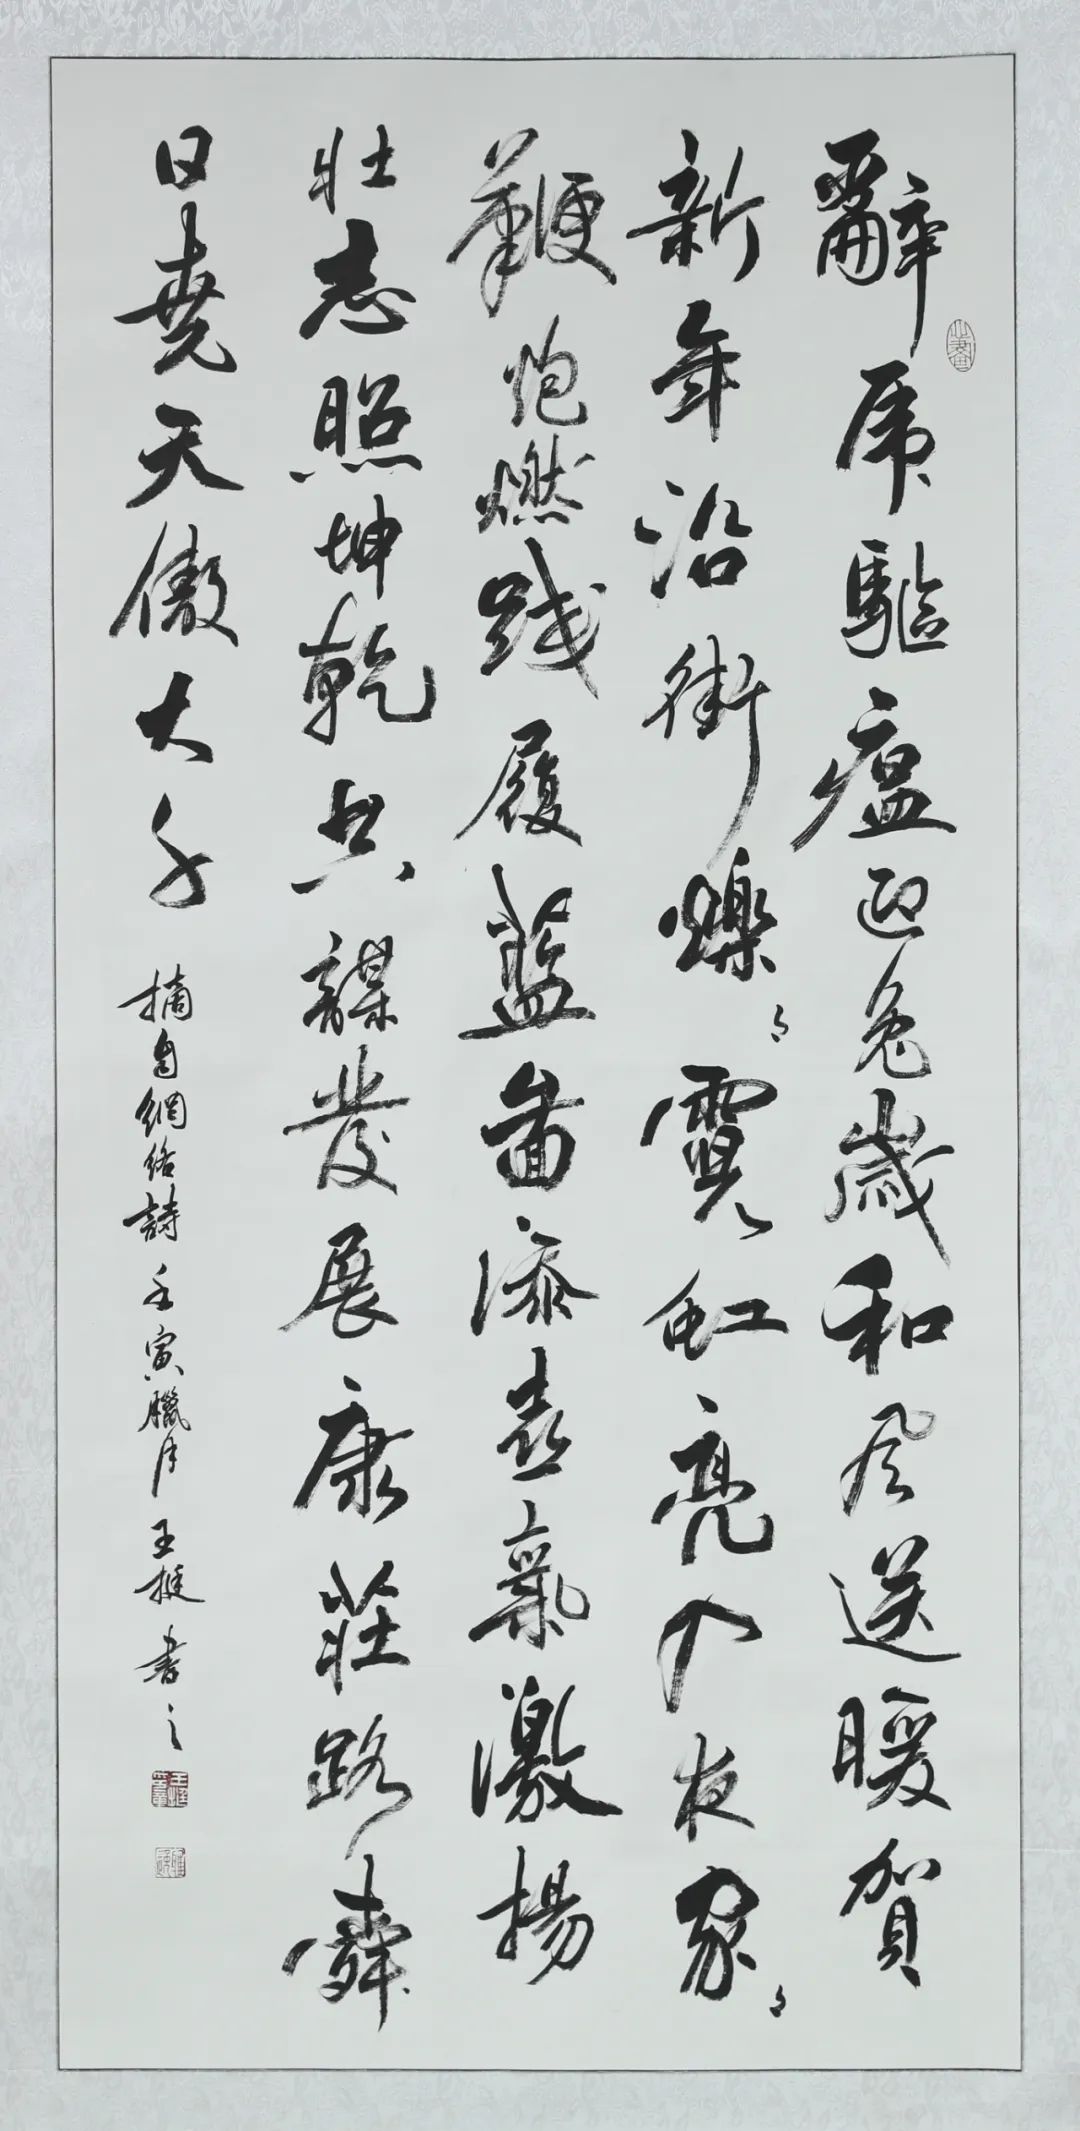 辭虎驅瘟迎兔歲和風送暖賀
新年沿街爍々霓虹亮入夜家々
鞭炮燃踐履藍圖添喜氣激揚
壯志照坤乾共謀發展康莊路舜
日堯天傲大千
摘自網絡詩壬寅臘月王挺書之